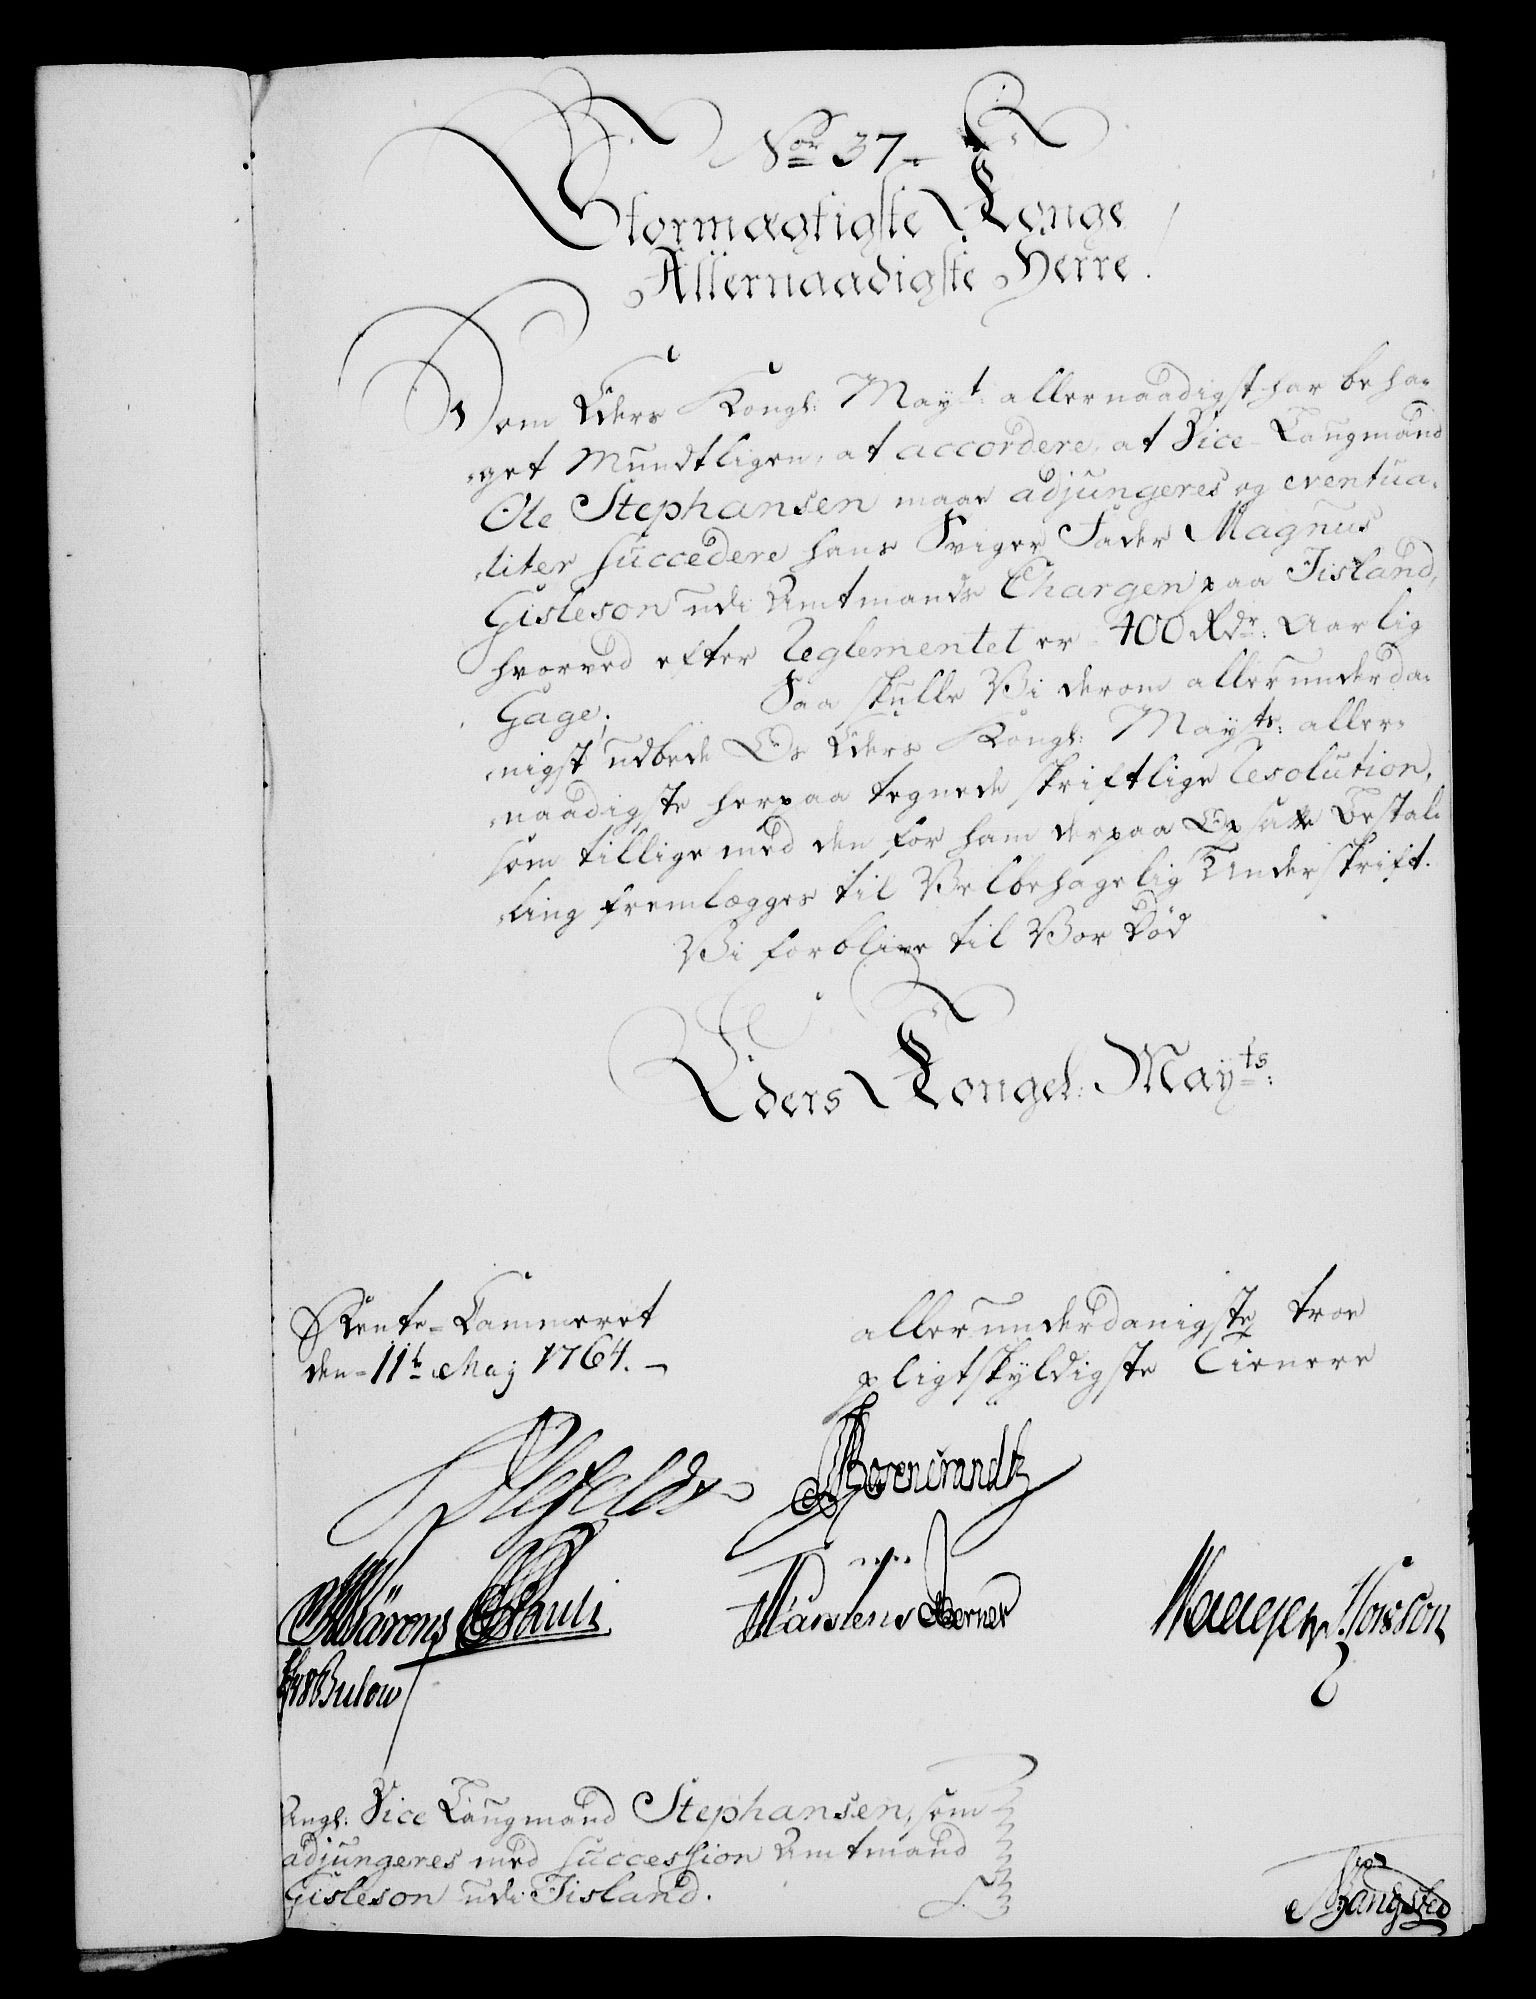 No 37.
Stormægtigste Konge
Allernaadigste Herre!
Som Eders Kongl: Mayt: allernaadigst har beha-
get Mundtligen, at accordere, at Vice-Laugmand
Ole Stephansen maae adjungeres og eventua-
liter succedere hans Sviger Fader Magnus
Gisleson udi Amtmands Chargen paa Iisland,
hvorved efter Reglementet er 400 Rdr: Aarlig
Gage; Saa skulle Vi derom allerunderda-
nigst udbede Os Eders Kongl: Mayts: aller-
naadigste herpaa tegnede skriftlige Resolution,
som tillige med den for ham derpaa Opsatte Bestal-
ling fremlægges til Velbehagelig Underskrift.
Vi forblive til Vor Død
Eders Kongel: Mayts:
Rente-Cammeret
den 11te Maj 1764.
allerunderdanigste troe
pligtskyldigste Tienere
Ahlefeldt
Pauli
Berner
Bulow
Angl: Vice Laugmand Stephansen, som
adjungeres med Succession Amtmand
Gisleson udi Iisland.